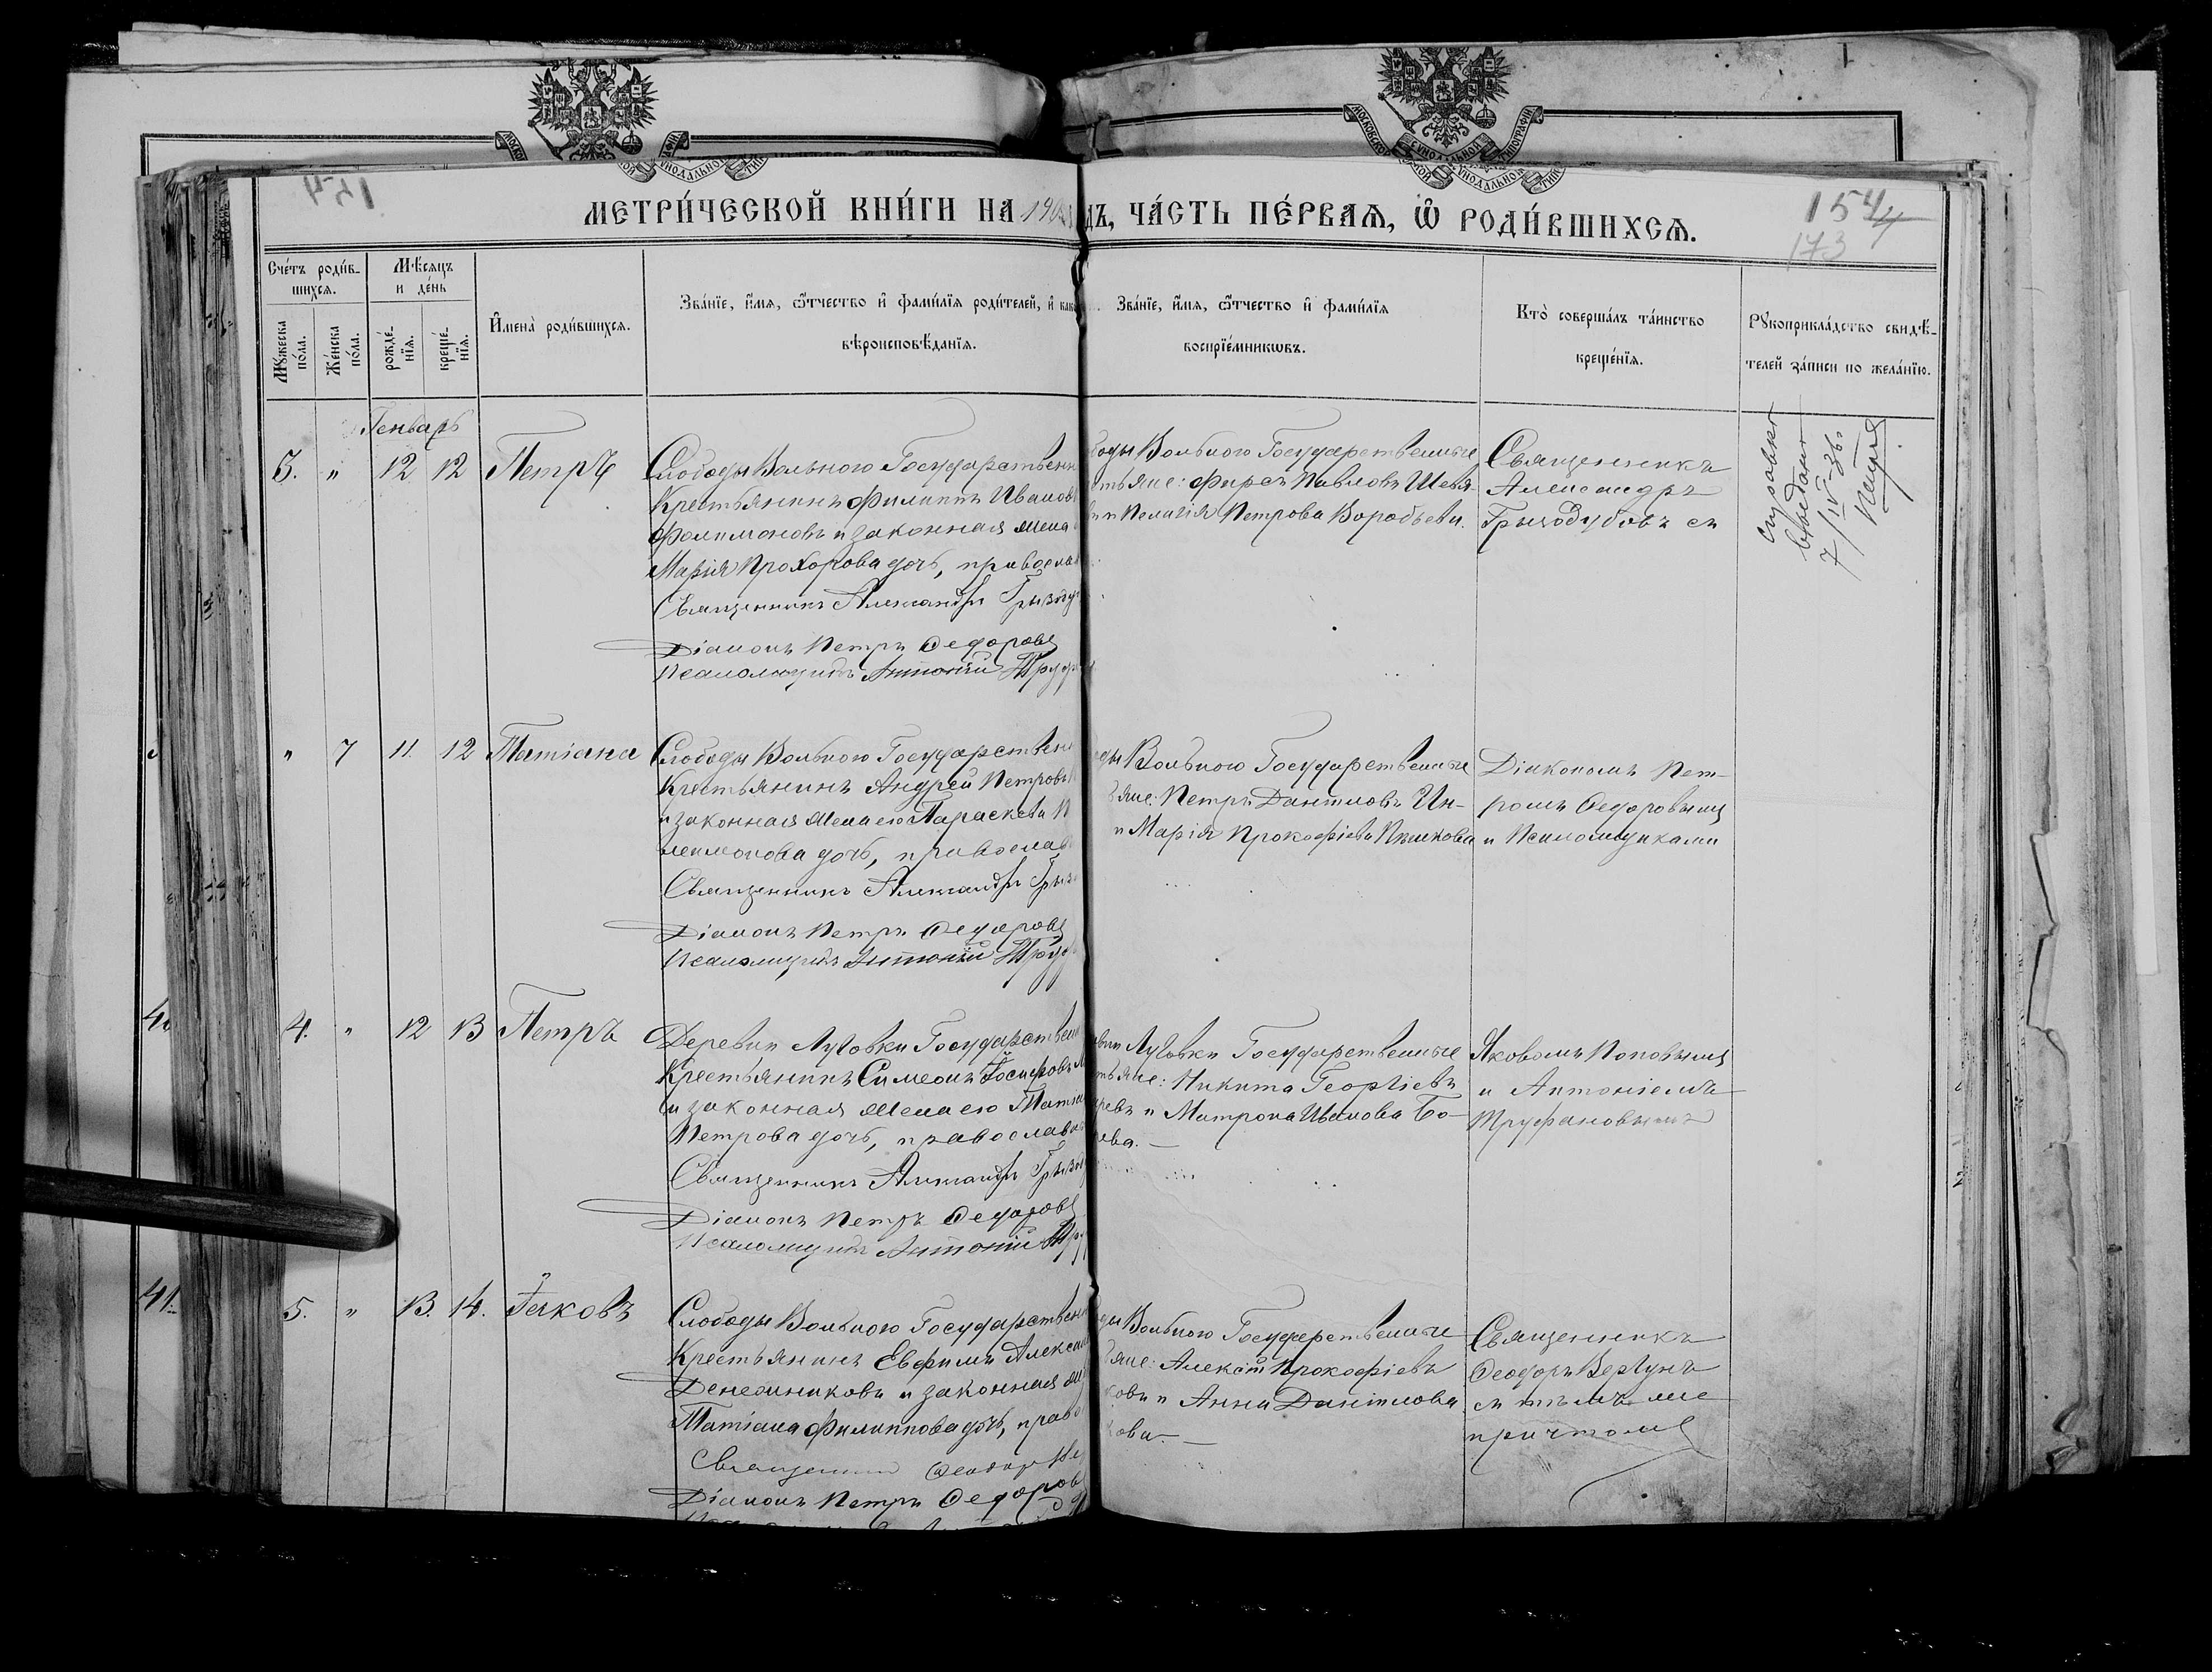 154
154
173
МЕТРИ́ЧЕСКОЙ КНИ́ГИ НА 190
ДЪ, ЧА́СТЬ ПЕ́РВАѦ, Ѡ҆ РОДИ́ВШИХСѦ.
Сче́тъ роди́в-
шихсѧ.
Мѣ́сѧцъ
и де́нь
Мꙋ́жеска
по́ла.
Же́нска
по́ла.
рожде́-
нїѧ.
креще́-
нїѧ.
И҆мена̀ роди́вшихсѧ.
Зва́нїе, и҆́мѧ, ѻ҆́тчество и҆ фами́лїѧ роди́телей, и҆
вѣроисповѣ́данїѧ.
Зва́нїе, и҆́мѧ, ѻ҆́тчество и҆ фами́лїѧ
воспрїе́мникѡвъ.
Кто̀ соверша́лъ та́инство
креще́нїѧ.
Рꙋкоприкла́дство свидѣ́-
телей за́писи по жела́нїю.
Генварь
3. " 12 12 Петръ
Слободы Вольного Государственн
Крестьянинъ Филиппъ Иванов
и законная жена
Марія Прохорова дочь, правосла
Священникъ Александръ Грызоду
Діаконъ Петръ Ѳедоровъ
Псаломщикъ Антоній Труф
оды Вольного Государственные
стьяне: Фирсъ Павловъ Шевя-
въ и Пелагія Петрова Воробьева.
Священникъ
Александръ
Грызодубовъ съ
" 7 11. 12 Татіана
Слободы Вольного Государствен
Крестьянинъ Андрей Петровъ
и законная жена его Параскева
дочь, православ
Священникъ Александръ Грызо
Діаконъ Петръ Ѳедоровъ
Псаломщикъ Антоній Труф
оды Вольного Государственные
ьяне: Петръ Даніиловъ Ин-
и Марія Прокофіева
Діакономъ Пет-
ромъ Ѳедоровымъ
и Псаломщиками
4. " 12 13 Петръ
Деревни Луговки Государствен
Крестьянинъ Симеонъ Іосифовъ
и законная жена его Татіа
Петрова дочь, православн
Священникъ Александръ Грызод
Діаконъ Петръ Ѳедоровъ
Псаломщикъ Антоній Тру
евни Луговки Государственные
стьяне: Никита Георгіевъ
ревъ и Матрона Иванова Бо-
рева.
Яковомъ Поповымъ
и Антоніемъ
Труфановымъ
5. " 13. 14. Іаковъ
Слободы Вольного Государствен
Крестьянинъ Евфимъ Алексѣ
и законная же
Татіана Филиппова дочь, право
Священникъ Ѳеодоръ Ве
Діаконъ Петръ Ѳедоров
ды Вольного Государственные
ьяне: Алексѣй Прокофіевъ
ковъ и Анна Даніилова
кова.
Священникъ
Ѳеодоръ Вергунъ
съ тѣмъ же
причтомъ
40
41.